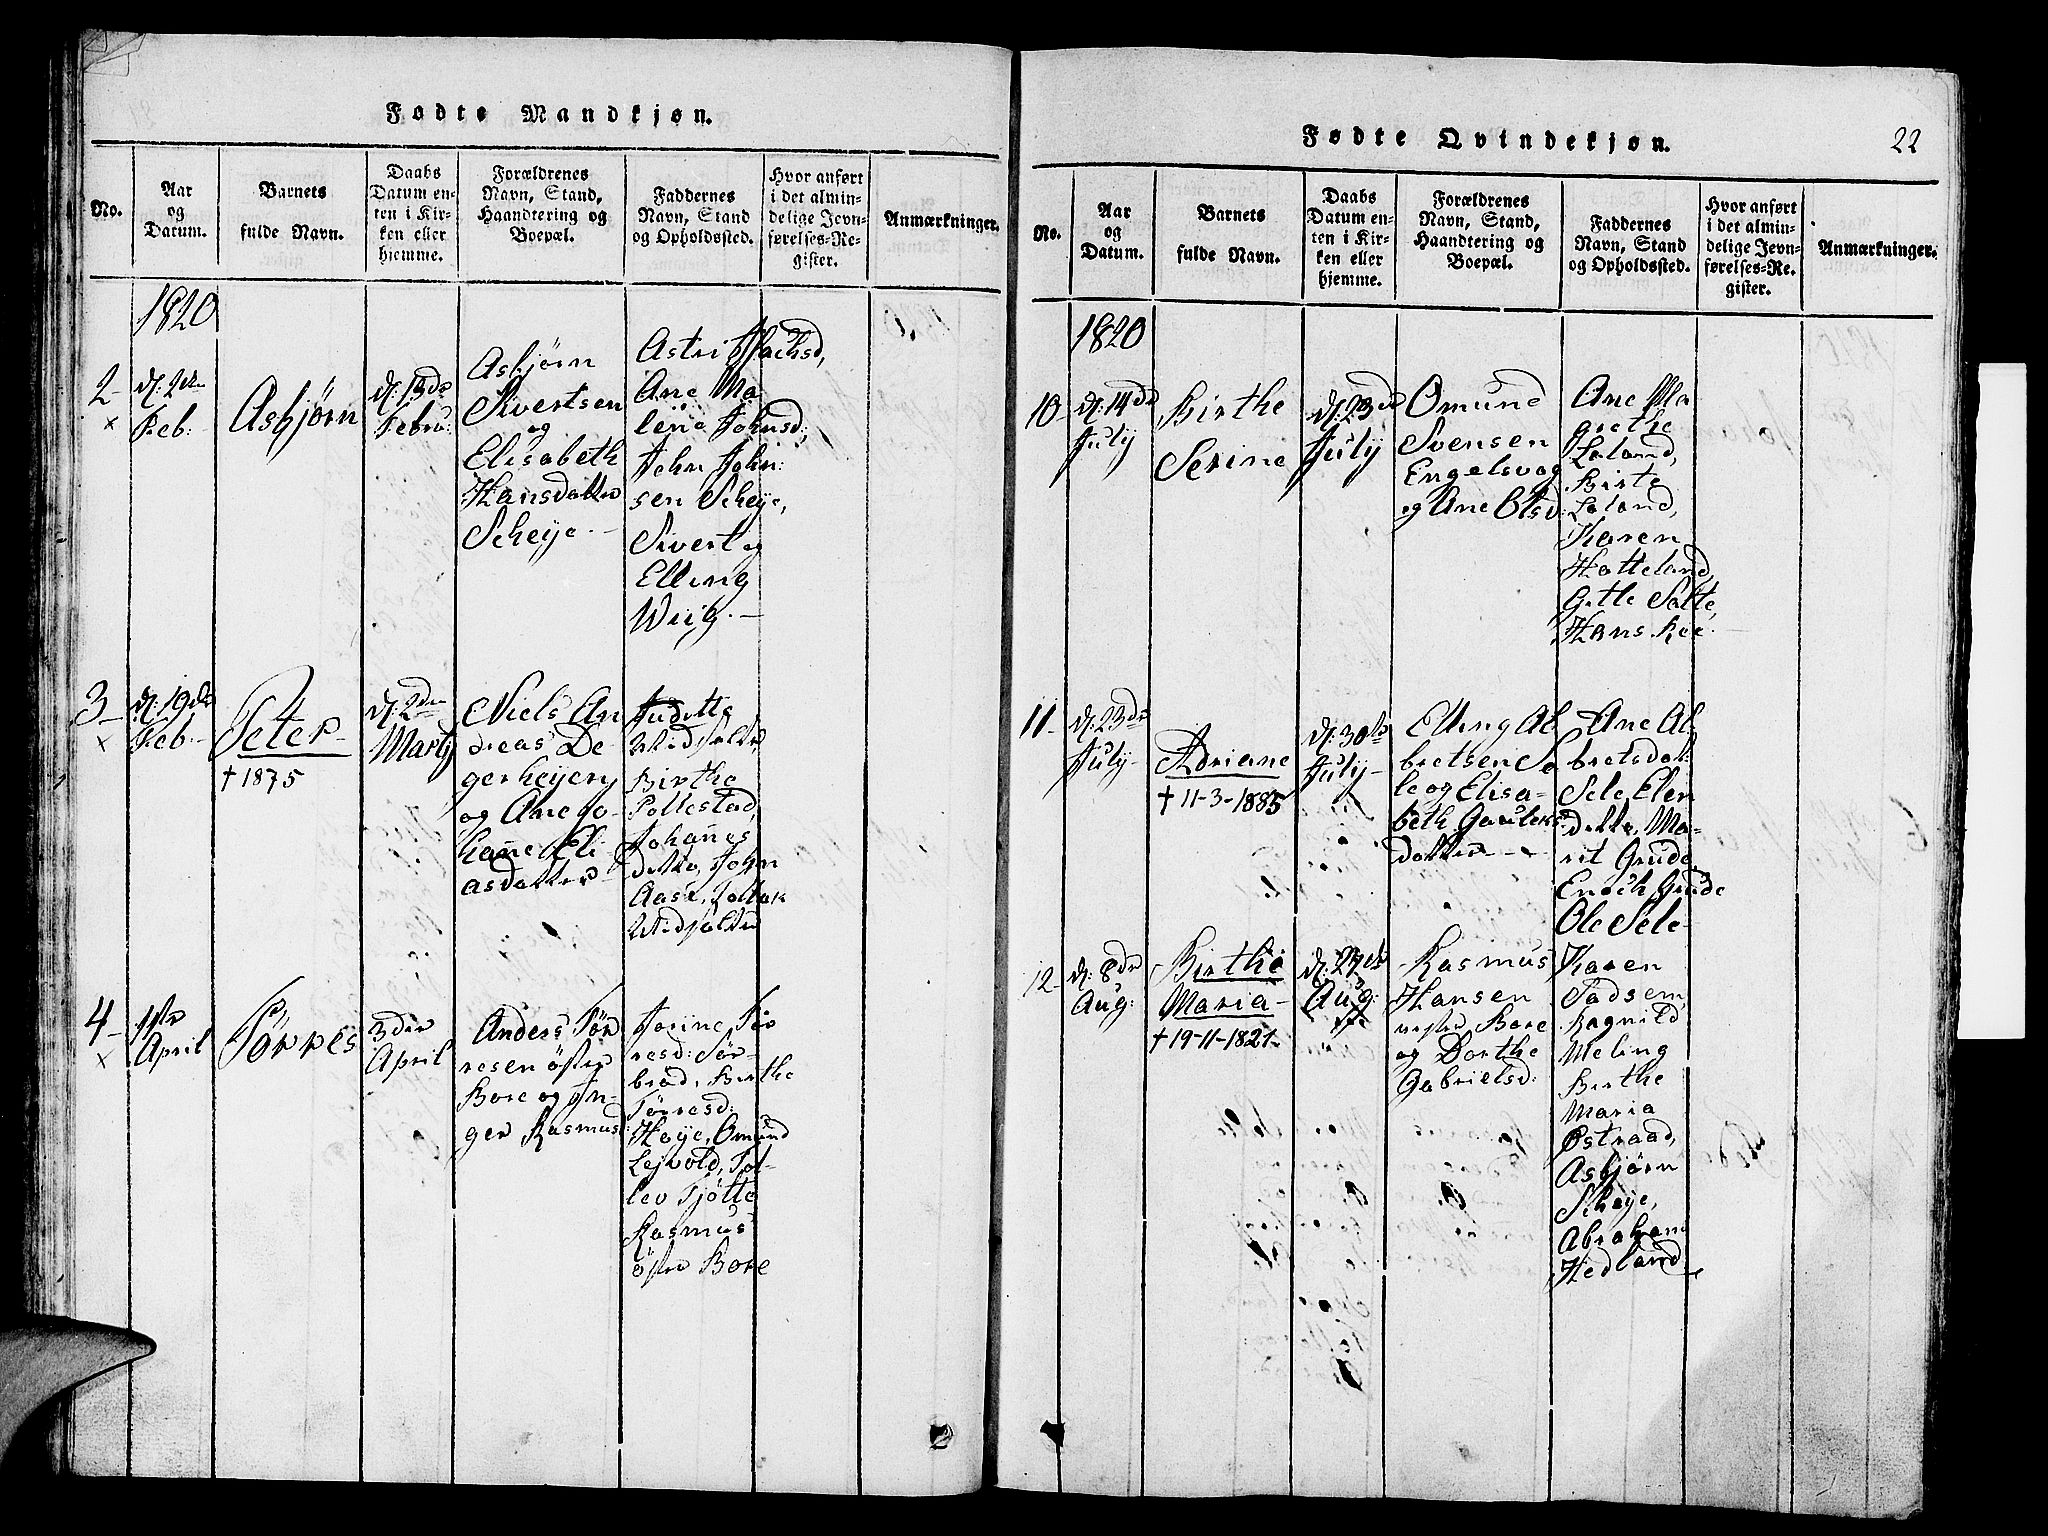 Fødte Mandkjøn.
No.
Aar
og
Datum.
Barnets
fulde Navn.
Daabs
Datum en-
ten i Kir-
ken eller
hjemme.
Forældrenes
Navn, Stand,
Haandtering og
Boepæl.
Faddernes
Navn, Stand
og Opholdssted.
Hvor anført
i det almin-
delige Jevn-
førelses-Re-
gister.
Anmærkninger.
1820
2
d: 2den
Feb:
Asbjørn
d: 13de
Febru:
Asbjørn
Sivertsen
og
Elisabeth
Hansdatter
Scheije
Astri
Ane Ma
lene Johnsd;
John John:
sen Scheije,
Sivert og
Elling
Wiig.
3
d: 19de
Feb.
Peter
† 1875
d: 2den
Martj
Niels An
dreas De-
gerheijen
og Ane Jo-
hane Eli-
asdatter
Judette
Widfaldt
Birthe
Pollestad,
Johanes
dette, John
Aase,
4
1ste
April
Törres
3der
April
Anders Tör
resen öster
Bore og In-
ger Rasmusd:
Josine Tör
resd: Sör-
braad, Birthe
Törresd:
Høije, Omund
Lejvold, Tol-
lev Tjötte
Rasmus
öster Bore
Fødte Qvindekjøn.
22
No.
Aar
og
Datum.
Barnets
fulde Navn.
Daabs
Datum en-
ten i Kir-
ken eller
hjemme.
Forældrenes
Navn, Stand,
Haandtering og
Boepæl.
Faddernes
Navn, Stand
og Opholdssted.
Hvor anført
i det almin-
delige Jevn-
førelses-Re-
gister.
Anmærkninger.
1820
10
d: 14de
July
Birthe
Serine
d: 23de
July
Omund
Svensen
Engelsvog
og Ane Olsd:
Ane Ma
grethe
Laland,
Birte
Laland,
Karen
Hatteland,
Gitle Salte,
Hans Ree.
11
d: 23de
July
Adriane
† 11-3-1885
d: 30te
July
Elling Al
bretsen Se
le og Elisa-
beth Gaulers
datter
Ane Al
bretsdat:
Sele, Elen
dette, Ma-
rit Grude,
Enoch Grude
Ole Sele
12
d: 8de
Aug:
Birthe
Maria
† 19-11-1821
d: 27de
Aug:
Rasmus
Hansen
vester Bore
og Dorthe
Gabrielsd:
Karen
Tadsem,
Ragnild
Meling
Birthe
Maria
Østraad,
Asbjørn
Scheije,
Abraham
Hedland